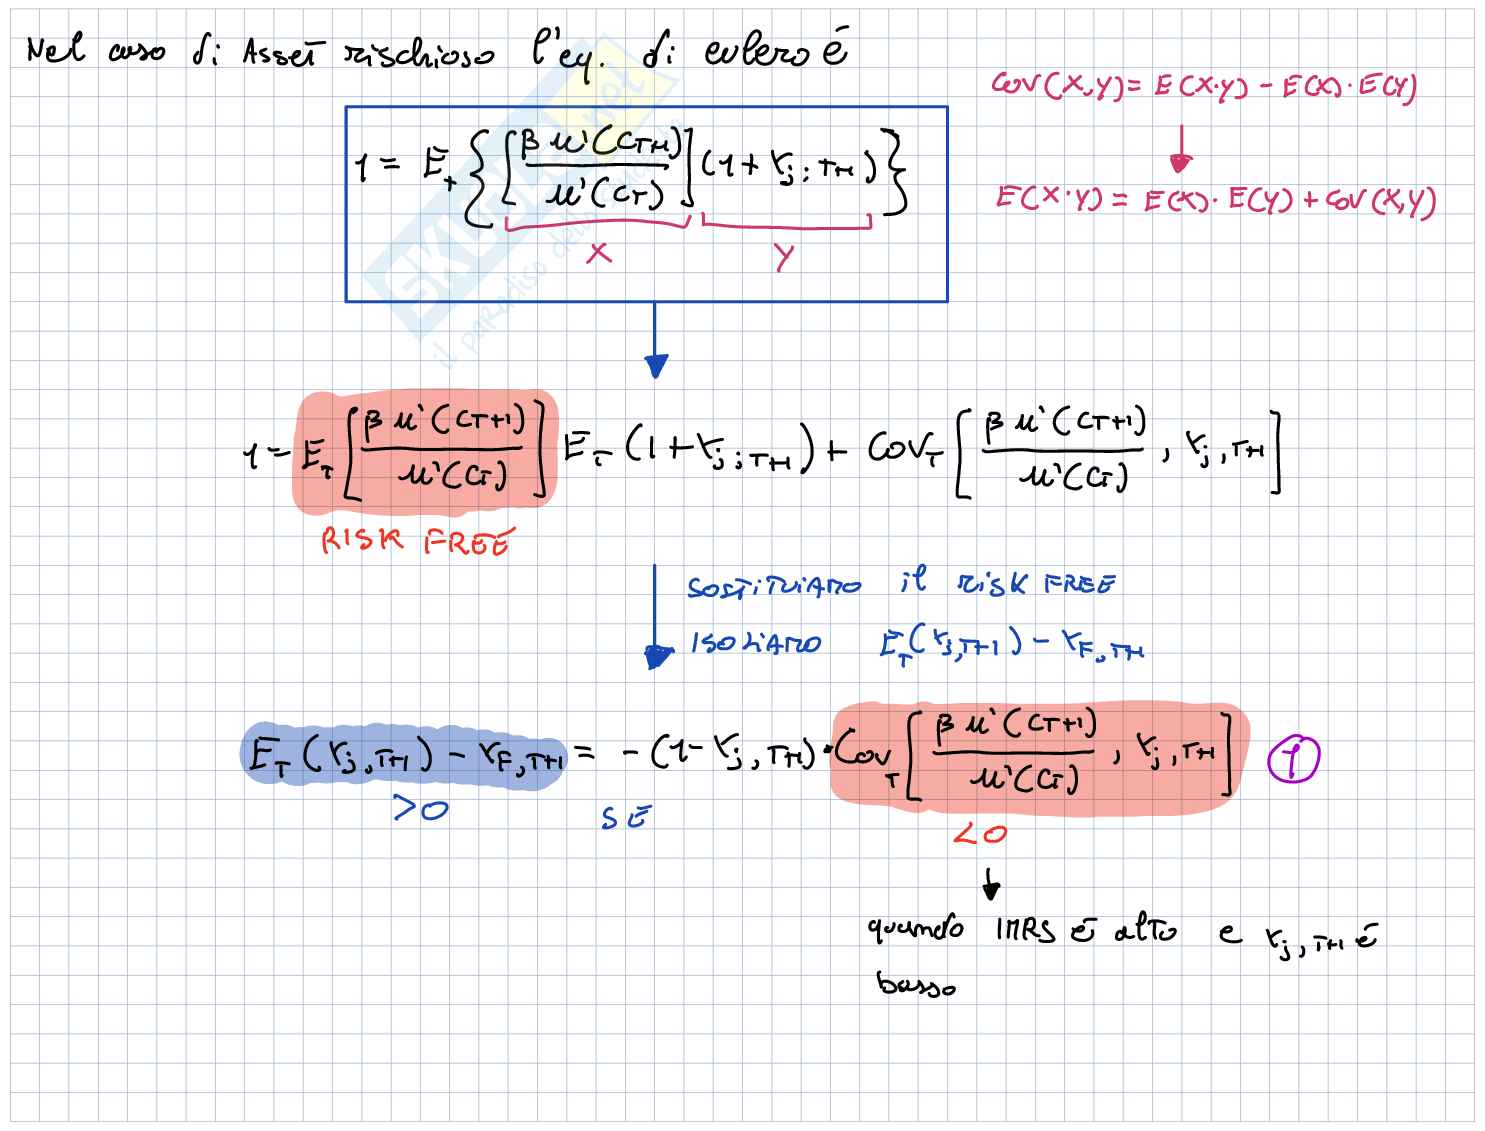 Nel caso di Asset rischioso l'eq. di eulero è
Cov(X,Y) = E(X·Y) - E(X)·E(Y)
1 = E_t { [ β u'(C_T+1) / u'(C_T) ] (1 + r_j;T+1) }
X Y
E(X·Y) = E(X)·E(Y) + Cov(X,Y)
SKUOLA.net
il paradiso dello
1 = E_T [ β u'(C_T+1) / u'(C_T) ] E_T (1 + r_j;T+1) + COV_T [ β u'(C_T+1) / u'(C_T) , r_j,T+1 ]
RISK FREE
SOSTITUIAMO il RISK FREE
ISOLIAMO E_T(r_j,T+1) - r_F,T+1
E_T (r_j,T+1) - r_F,T+1 = - (1 - r_j,T+1) · Cov_T [ β u'(C_T+1) / u'(C_T) , r_j,T+1 ] 1
>0 SE <0
quando IMRS è alto e r_j,T+1 è
basso